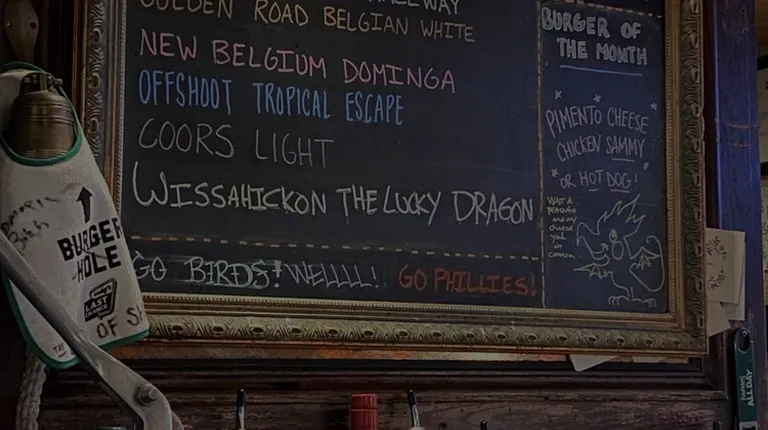 GOLDEN ROAD BELGIAN WHITE
NEW BELGIUM DOMINGA
OFFSHOOT TROPICAL ESCAPE
COORS LIGHT
WISSAHICKON THE LUCKY DRAGON
GO BIRDS! WELLLL! GO PHILLIES!
BURGER OF
THE MONTH
PIMENTO CHEESE
CHICKEN SAMMY
OR HOT DOG!
BURGER
HOLE
LAST
OF
ALL DAY